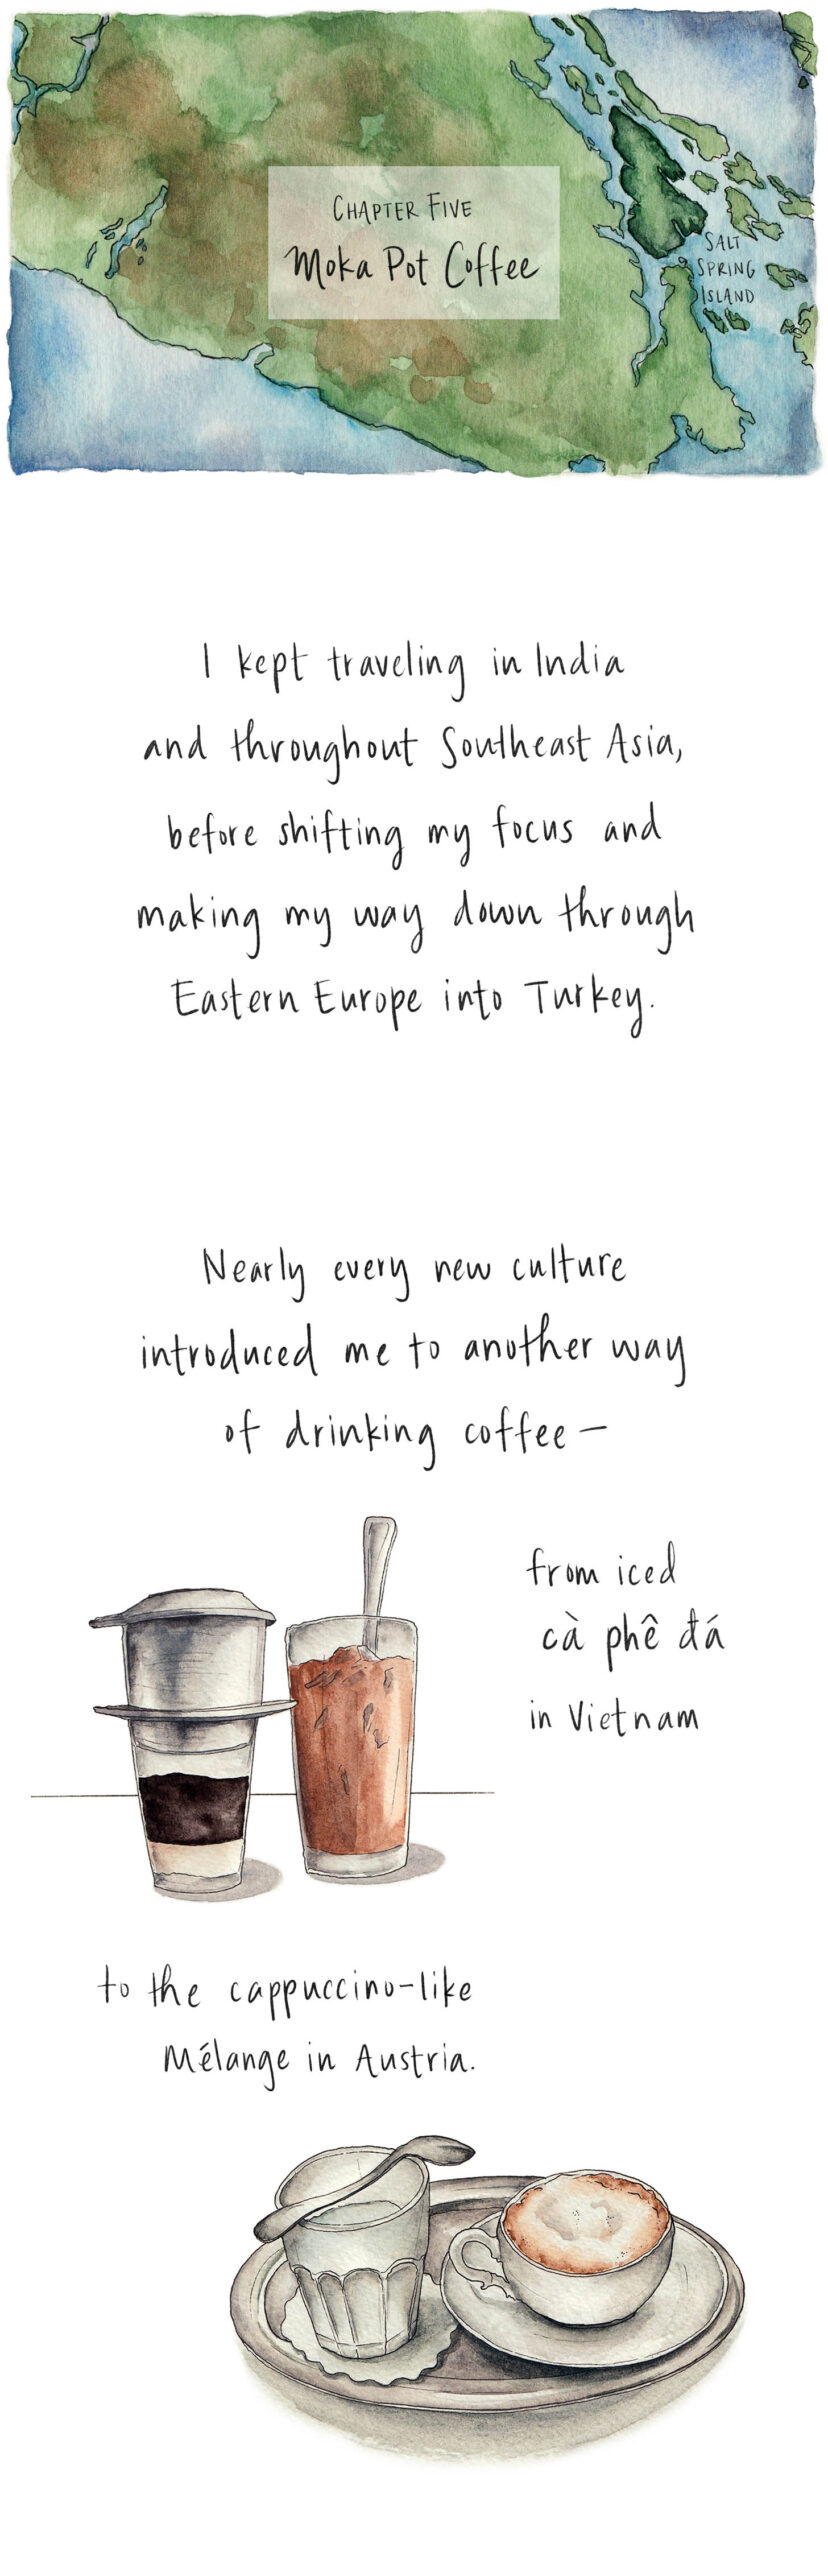 CHAPTER FIVE
Moka Pot Coffee
SALT
SPRING
ISLAND
I kept traveling in India
and throughout Southeast Asia,
before shifting my focus and
making my way down through
Eastern Europe into Turkey.
Nearly every new culture
introduced me to another way
of drinking coffee—
from iced
cà phê đá
in Vietnam
to the cappuccino-like
Mélange in Austria.